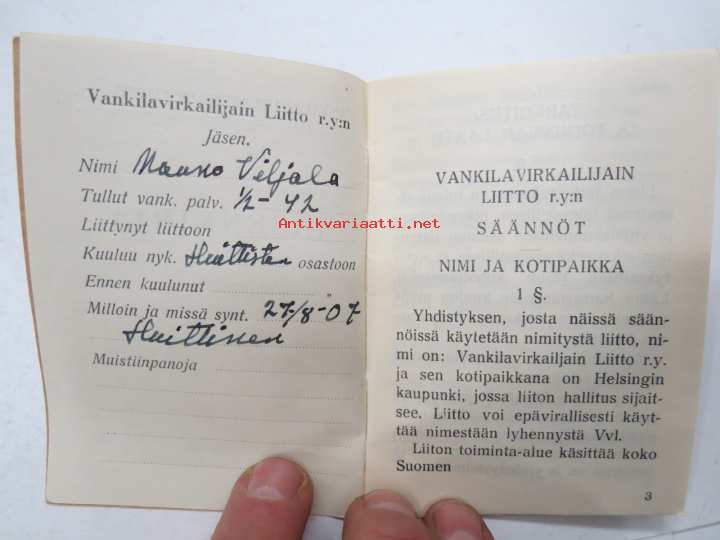 Vankilavirkailijain Liitto r.y:n
Jäsen.
Nimi Mauno Viljala
Tullut vank. palv. 1/2-42
Liittynyt liittoon
Kuuluu nyk. Huittisten osastoon
Ennen kuulunut „
Milloin ja missä synt. 27/8-07
Huittinen
Muistiinpanoja
Antikvariaatti.net
VANKILAVIRKAILIJAIN
LIITTO r.y:n
SÄÄNNÖT
NIMI JA KOTIPAIKKA
1 §.
Yhdistyksen, josta näissä sään-
nöissä käytetään nimitystä liitto, ni-
mi on: Vankilavirkailjain Liitto r.y.
ja sen kotipaikkana on Helsingin
kaupunki, jossa liiton hallitus sijait-
see. Liitto voi epävirallisesti käyt-
tää nimestään lyhennystä Vvl.
Liiton toiminta-alue käsittää koko
Suomen
3